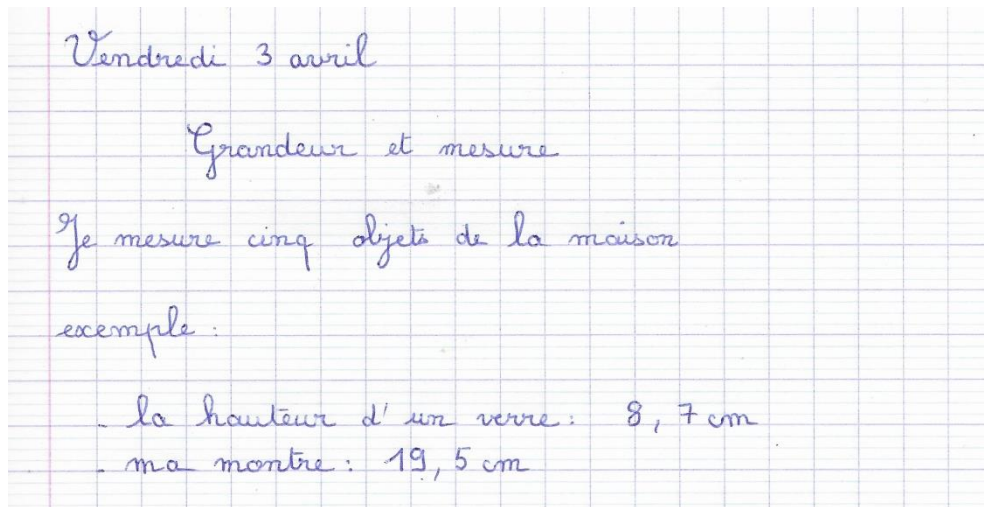 Vendredi 3 avril
Grandeur et mesure
Je mesure cinq objets de la maison
exemple :
- la hauteur d'un verre : 8,7 cm
- ma montre : 19,5 cm